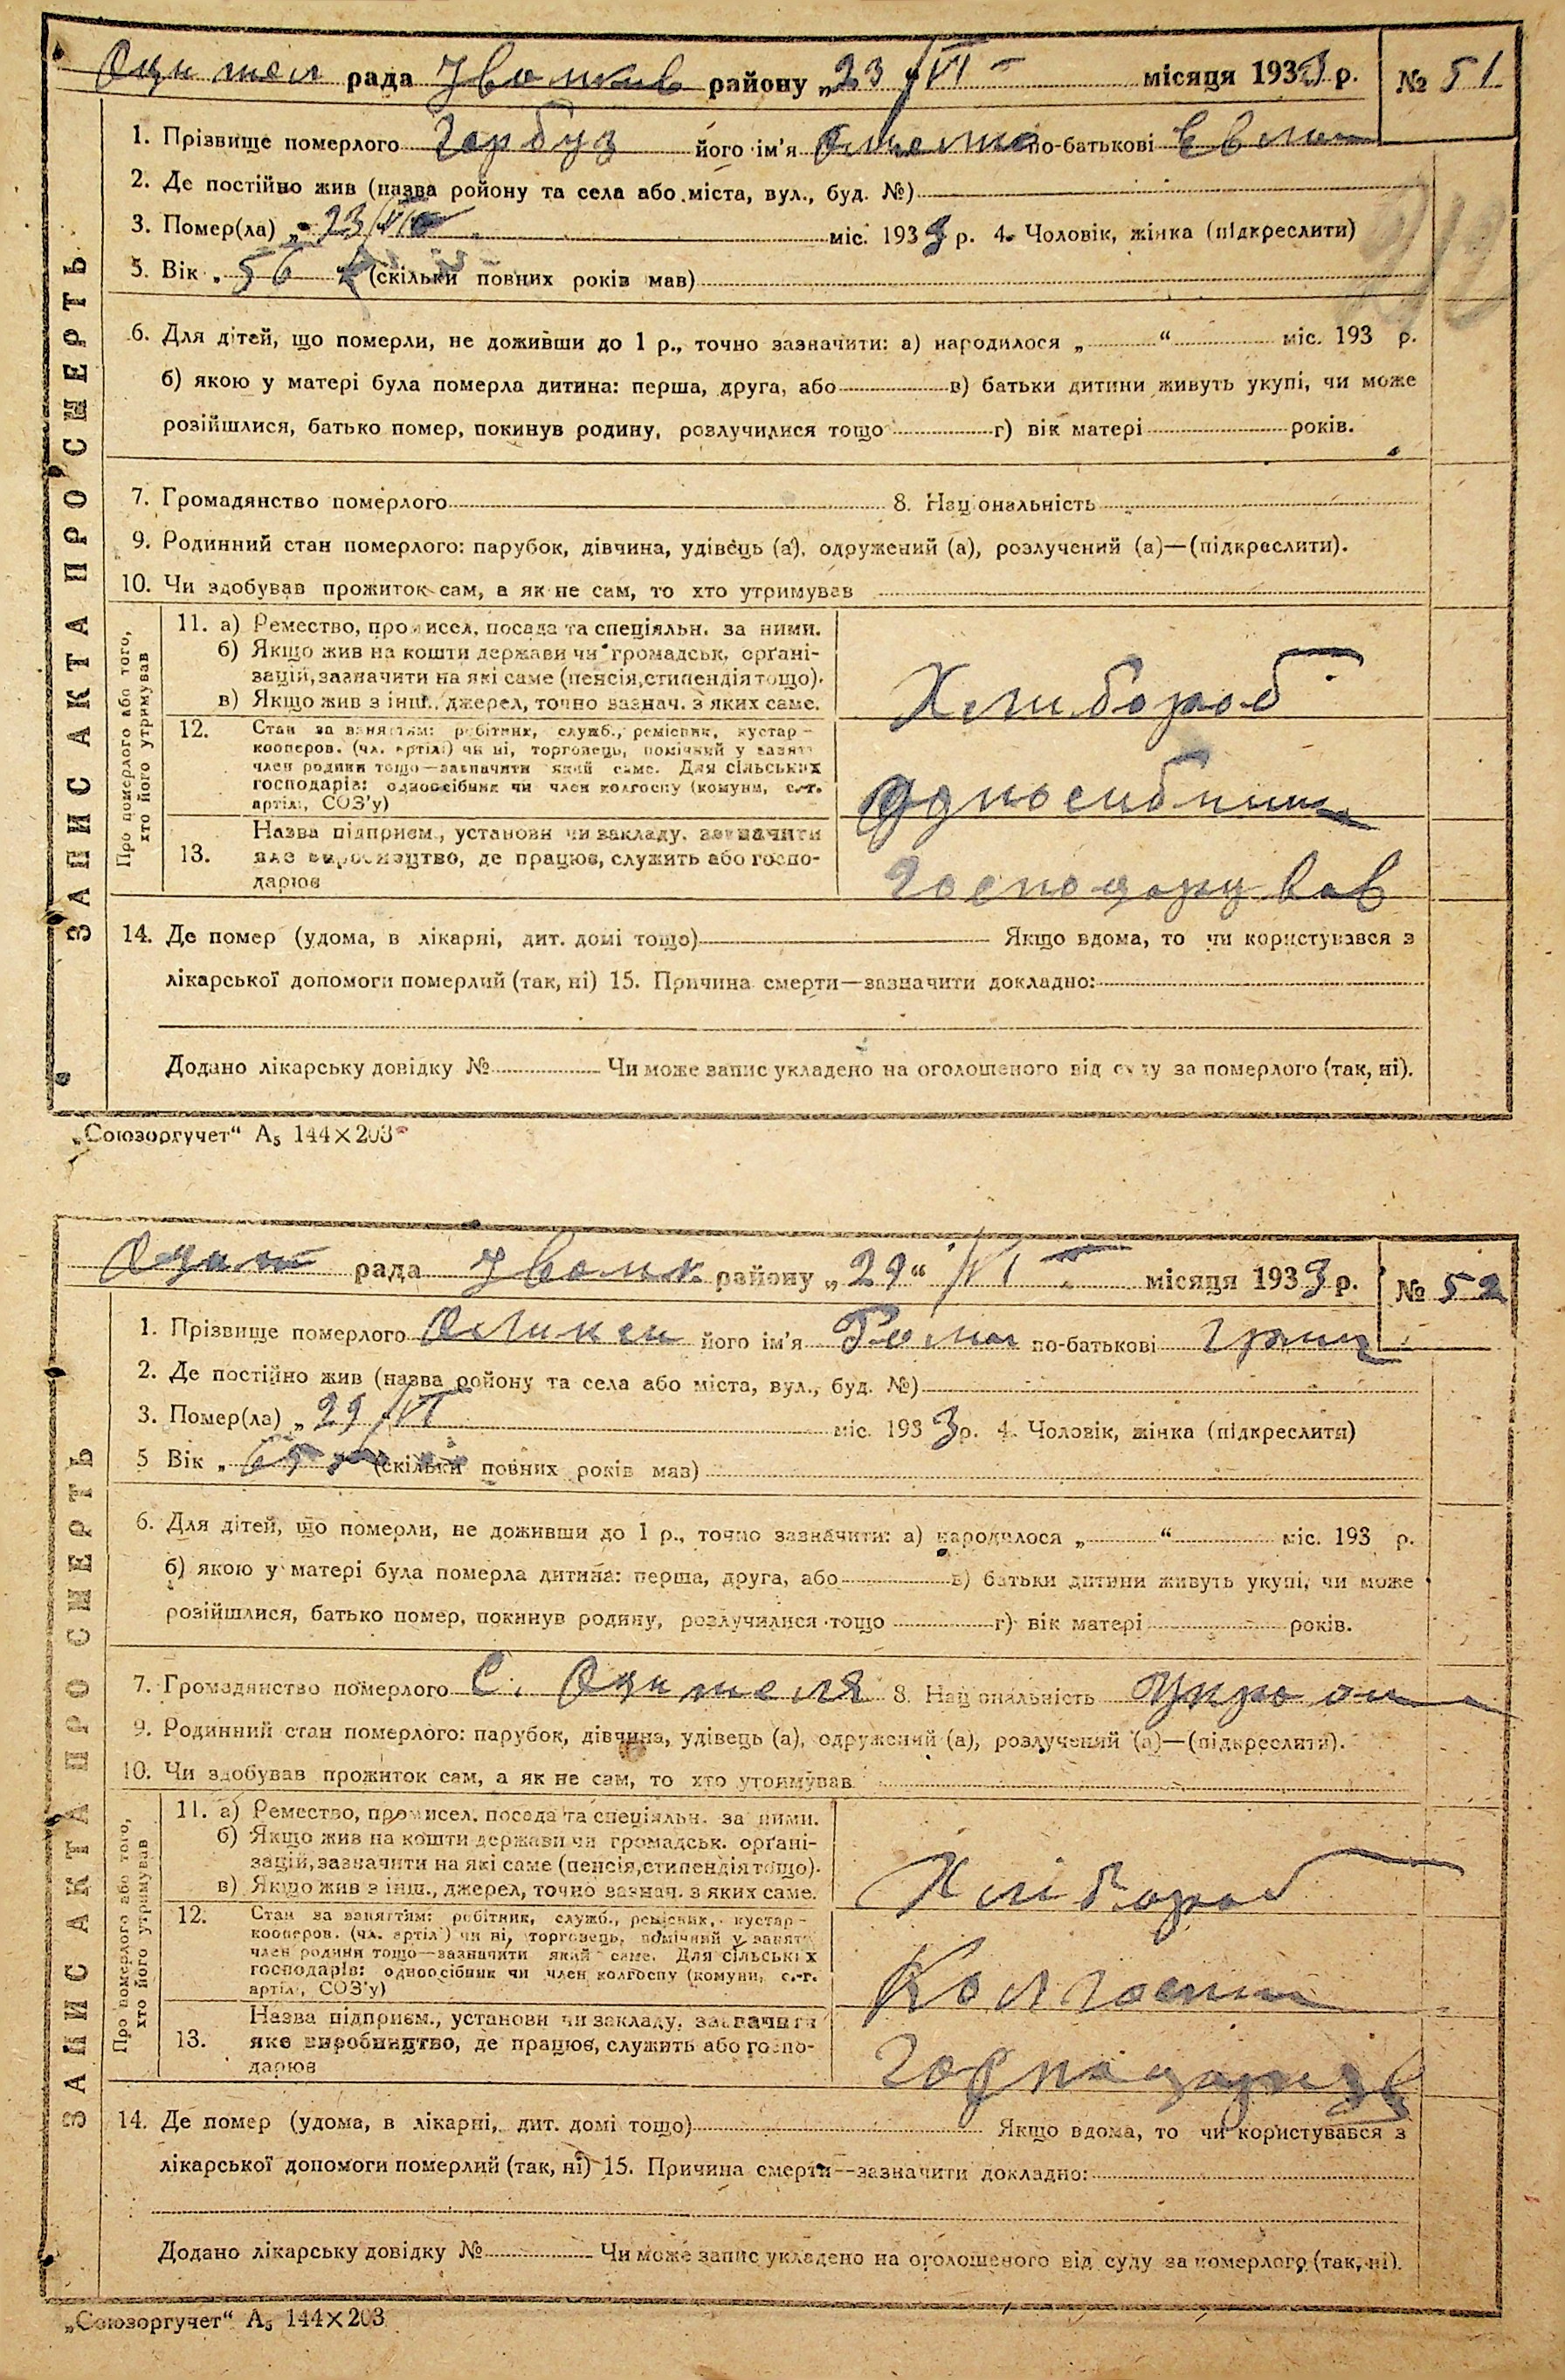 рада району „23 /VI місяця 1933 р. № 51
1. Прізвище померлого Гарбуз його ім'я по-батькові
2. Де постійно жив (назва ройону та села або міста, вул., буд. №)
3. Помер(ла) „ 23/VI міс. 1933 р. 4. Чоловік, жінка (підкреслити)
5. Вік „ 56 (скільки повних років мав)
6. Для дітей, що померли, не доживши до 1 р., точно зазначити: а) народилося „ “ міс. 193 р.
б) якою у матері була померла дитина: перша, друга, або в) батьки дитини живуть укупі, чи може
розійшлися, батько помер, покинув родину, розлучилися тощо г) вік матері років.
7. Громадянство померлого 8. Національність
9. Родинний стан померлого: парубок, дівчина, удівець (а), одружений (а), розлучений (а)—(підкреслити).
10. Чи здобував прожиток сам, а як не сам, то хто утримував
ЗАПИС АКТА ПРО СМЕРТЬ
Про померлого або того,
хто його утримував
11. а) Ремество, промисел, посада та спеціяльн. за ними.
б) Якщо жив на кошти держави чи громадськ. орґані-
зацій, зазначити на які саме (пенсія, стипендія тощо).
в) Якщо жив з інш., джерел, точно зазнач. з яких саме.
Хлибороб
12. Стан за заняттям: робітник, служб., ремісник, кустар-
кооперов. (чл. артілі) чи ні, торговець, помічний у занятт
член родини тощо—зазначити який саме. Для сільських
господарів: одноосібник чи член колгоспу (комуни, с.-г.
артілі, СОЗ'у)
13. Назва підприєм., установи чи закладу, зазначити
яке виробництво, де працює, служить або госпо-
дарює
Господарував
14. Де помер (удома, в лікарні, дит. домі тощо) Якщо вдома, то чи користувався з
лікарської допомоги померлий (так, ні) 15. Причина смерти—зазначити докладно:
Додано лікарську довідку № Чи може запис укладено на оголошеного від суду за померлого (так, ні).
„Союзоргучет“ А₅ 144×203
рада району „29“ /VI місяця 1933 р. № 52
1. Прізвище померлого його ім'я Роман по-батькові Гриц
2. Де постійно жив (назва ройону та села або міста, вул., буд. №)
3. Помер(ла) „ 29/VI міс. 1933 р. 4. Чоловік, жінка (підкреслити)
5 Вік „ (скільки повних років мав)
6. Для дітей, що померли, не доживши до 1 р., точно зазначити: а) народилося „ “ міс. 193 р.
б) якою у матері була померла дитина: перша, друга, або в) батьки дитини живуть укупі, чи може
розійшлися, батько помер, покинув родину, розлучилися тощо г) вік матері років.
7. Громадянство померлого С. 8. Національність
9. Родинний стан померлого: парубок, дівчина, удівець (а), одружений (а), розлучений (а)—(підкреслити).
10. Чи здобував прожиток сам, а як не сам, то хто утримував
ЗАПИС АКТА ПРО СМЕРТЬ
Про померлого або того,
хто його утримував
11. а) Ремество, промисел, посада та спеціяльн. за ними.
б) Якщо жив на кошти держави чи громадськ. орґані-
зацій, зазначити на які саме (пенсія, стипендія тощо).
в) Якщо жив з інш., джерел, точно зазнач. з яких саме.
Хлібороб
12. Стан за заняттям: робітник, служб., ремісник, кустар-
кооперов. (чл. артілі) чи ні, торговець, помічний у занятт
член родини тощо—зазначити який саме. Для сільських
господарів: одноосібник чи член колгоспу (комуни, с.-г.
артілі, СОЗ'у)
13. Назва підприєм., установи чи закладу, зазначити
яке виробництво, де працює, служить або госпо-
дарює
14. Де помер (удома, в лікарні, дит. домі тощо) Якщо вдома, то чи користувався з
лікарської допомоги померлий (так, ні) 15. Причина смерти—зазначити докладно:
Додано лікарську довідку № Чи може запис укладено на оголошеного від суду за померлого (так, ні).
„Союзоргучет“ А₅ 144×203